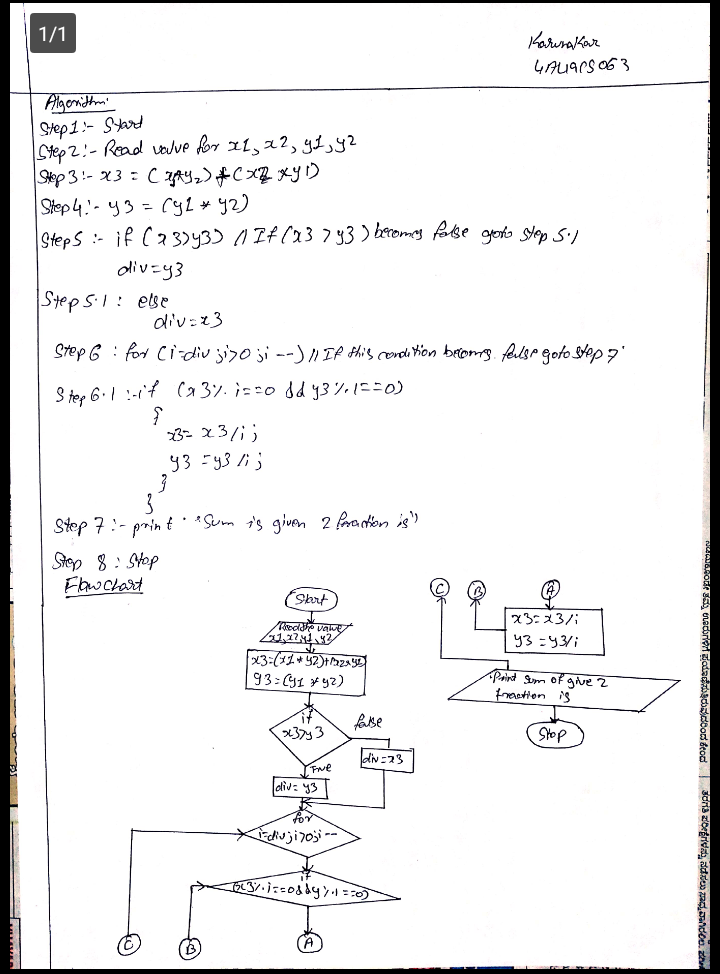 1/1
Karunakar
4AL19CS063
Algorithm:
Step 1:- Start
Step 2:- Read value for x1, x2, y1, y2
Step 3:- x3 = (x1*y2) + (x2 *y1)
Step 4:- y3 = (y1 * y2)
Step 5 :- if (x3>y3) // If (x3 > y3) becomes false goto step 5.1
div=y3
Step 5.1 : else
div=x3
Step 6 : for (i=div ; i>0 ; i --) // If this condition becomes false goto step 7
Step 6.1 :- if (x3%. i==0 && y3 %. i==0)
{
x3= x3/i ;
y3 =y3/i ;
}
}
Step 7 :- print "Sum is given 2 fraction is"
Step 8 : Stop
Flowchart
Start
Read the value
x1, x2, y1, y2
x3=(x1*y2)+(x2*y1)
y3=(y1 * y2)
if
x3>y3
false
div=x3
True
div= y3
for
i=div ; i>0 ; i --
if
(x3%. i==0 && y %. i==0)
C
B
A
C
B
A
x3=x3/i
y3 =y3/i
Print sum of give 2
fraction is
Stop